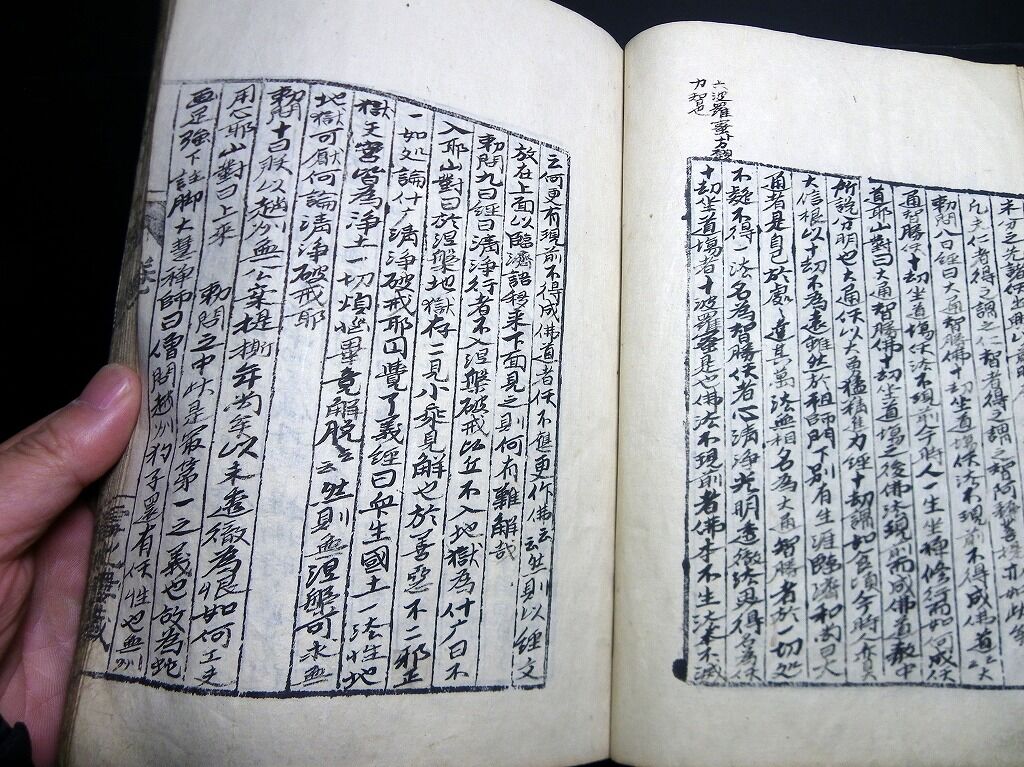 六波羅蜜十方智
力智也
勅問八曰經曰大通智勝佛十劫坐道場佛法不現前不得成佛道云云大
通智勝佛十劫坐道場佛法不現前今時人一生坐禪修行而如何成佛
道耶山對曰大通智勝佛十劫坐道場之後佛法現前而成佛道教中
所說分明也大通佛以大勇猛精進力經十劫謂如食頃今時人貴
大信根以十劫不為遠雖然於祖師門下別有生涯臨濟和尚曰大
通者是自己於處處達其萬法無相名為大通智勝者於一切處
不疑不得一法名為智勝佛者心清淨光明透徹法界得名為佛
十劫坐道場者十波羅蜜是也佛法不現前者佛本不生法本不滅
云何更有現前不得成佛道者佛不應更作佛云云然則以經文
放在上面以臨濟語移来下面見之則何有難解哉
勅問九曰經曰清淨行者不入涅槃破戒比丘不入地獄為什广曰不
入耶山對曰於涅槃地獄存二見小乘見解也於善惡不二邪正
一如処論什广清淨破戒耶円覺了義經曰血生國土一法性地
獄天宮皆為淨土一切煩惱畢竟解脫云云然則無涅槃可求無
地獄可厭何論清淨破戒耶
勅問十曰朕以趙州無公案提撕年尚矣以未透徹為恨如何工夫
用心耶山對曰上来 勅問之中此是最第一之義也故為蛇
画足強下註脚大慧禪師曰僧問趙州狗子還有佛性也無州